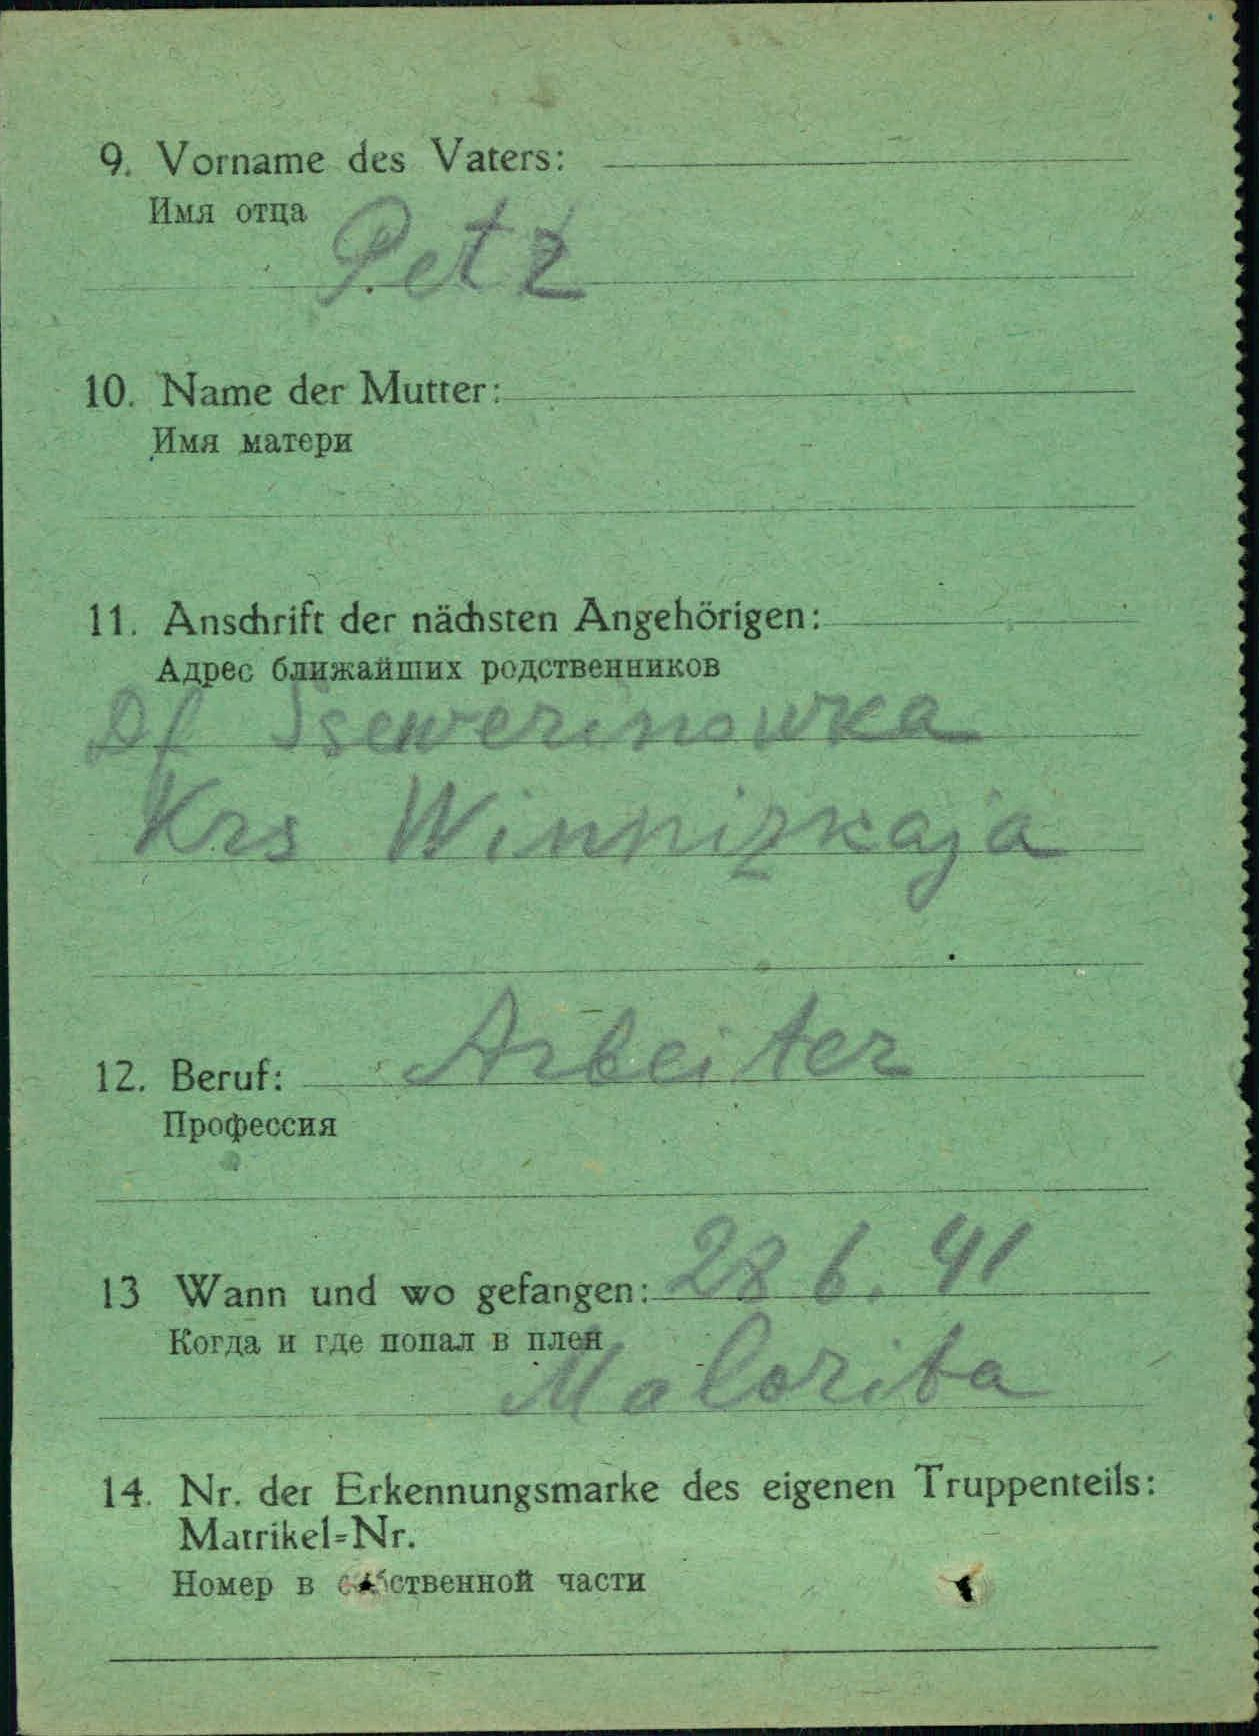 9. Vorname des Vaters:
Имя отца
Petr
10. Name der Mutter:
Имя матери
11. Anschrift der nächsten Angehörigen:
Адрес ближайших родственников
Df Ssewerinowka
Krs Winnizkaja
12. Beruf: Arbeiter
Профессия
13 Wann und wo gefangen: 28 6. 41
Когда и где попал в плен
Malorita
14. Nr. der Erkennungsmarke des eigenen Truppenteils:
Matrikel=Nr.
Номер в собственной части